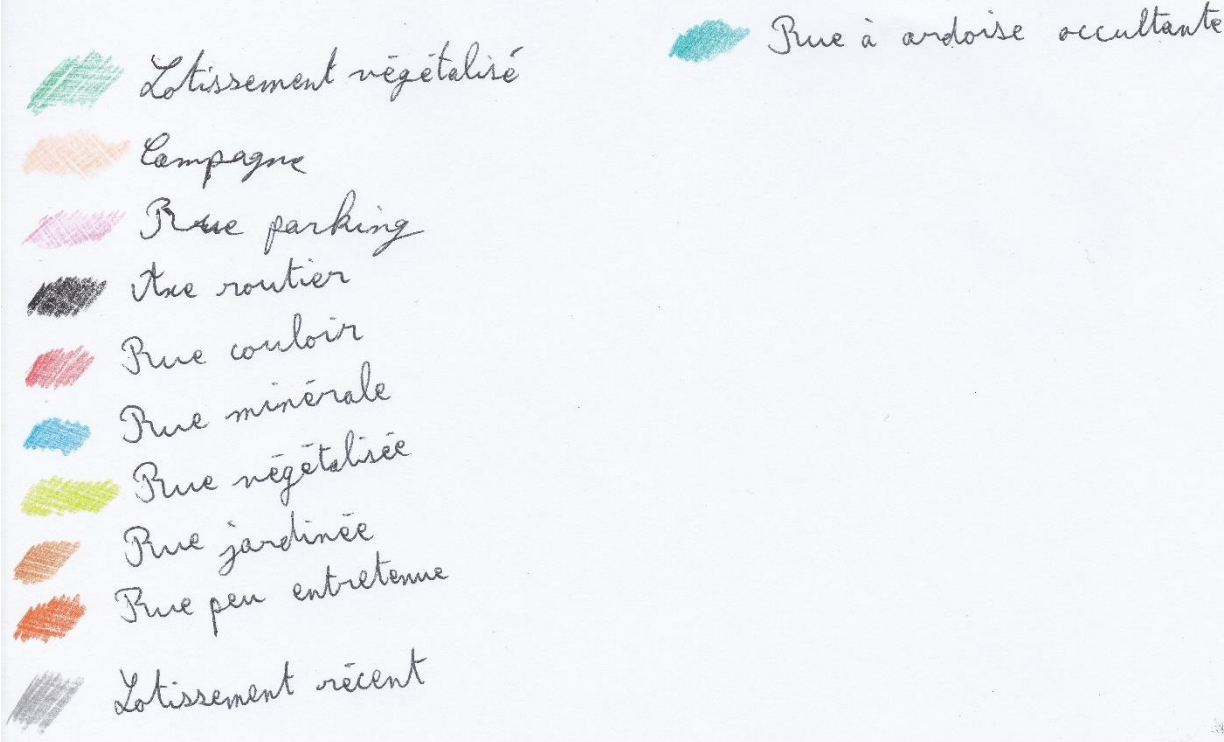 Lotissement végétalisé
Campagne
Rue parking
Axe routier
Rue couloir
Rue minérale
Rue végétalisée
Rue jardinée
Rue peu entretenue
Lotissement récent
Rue à ardoise occultante